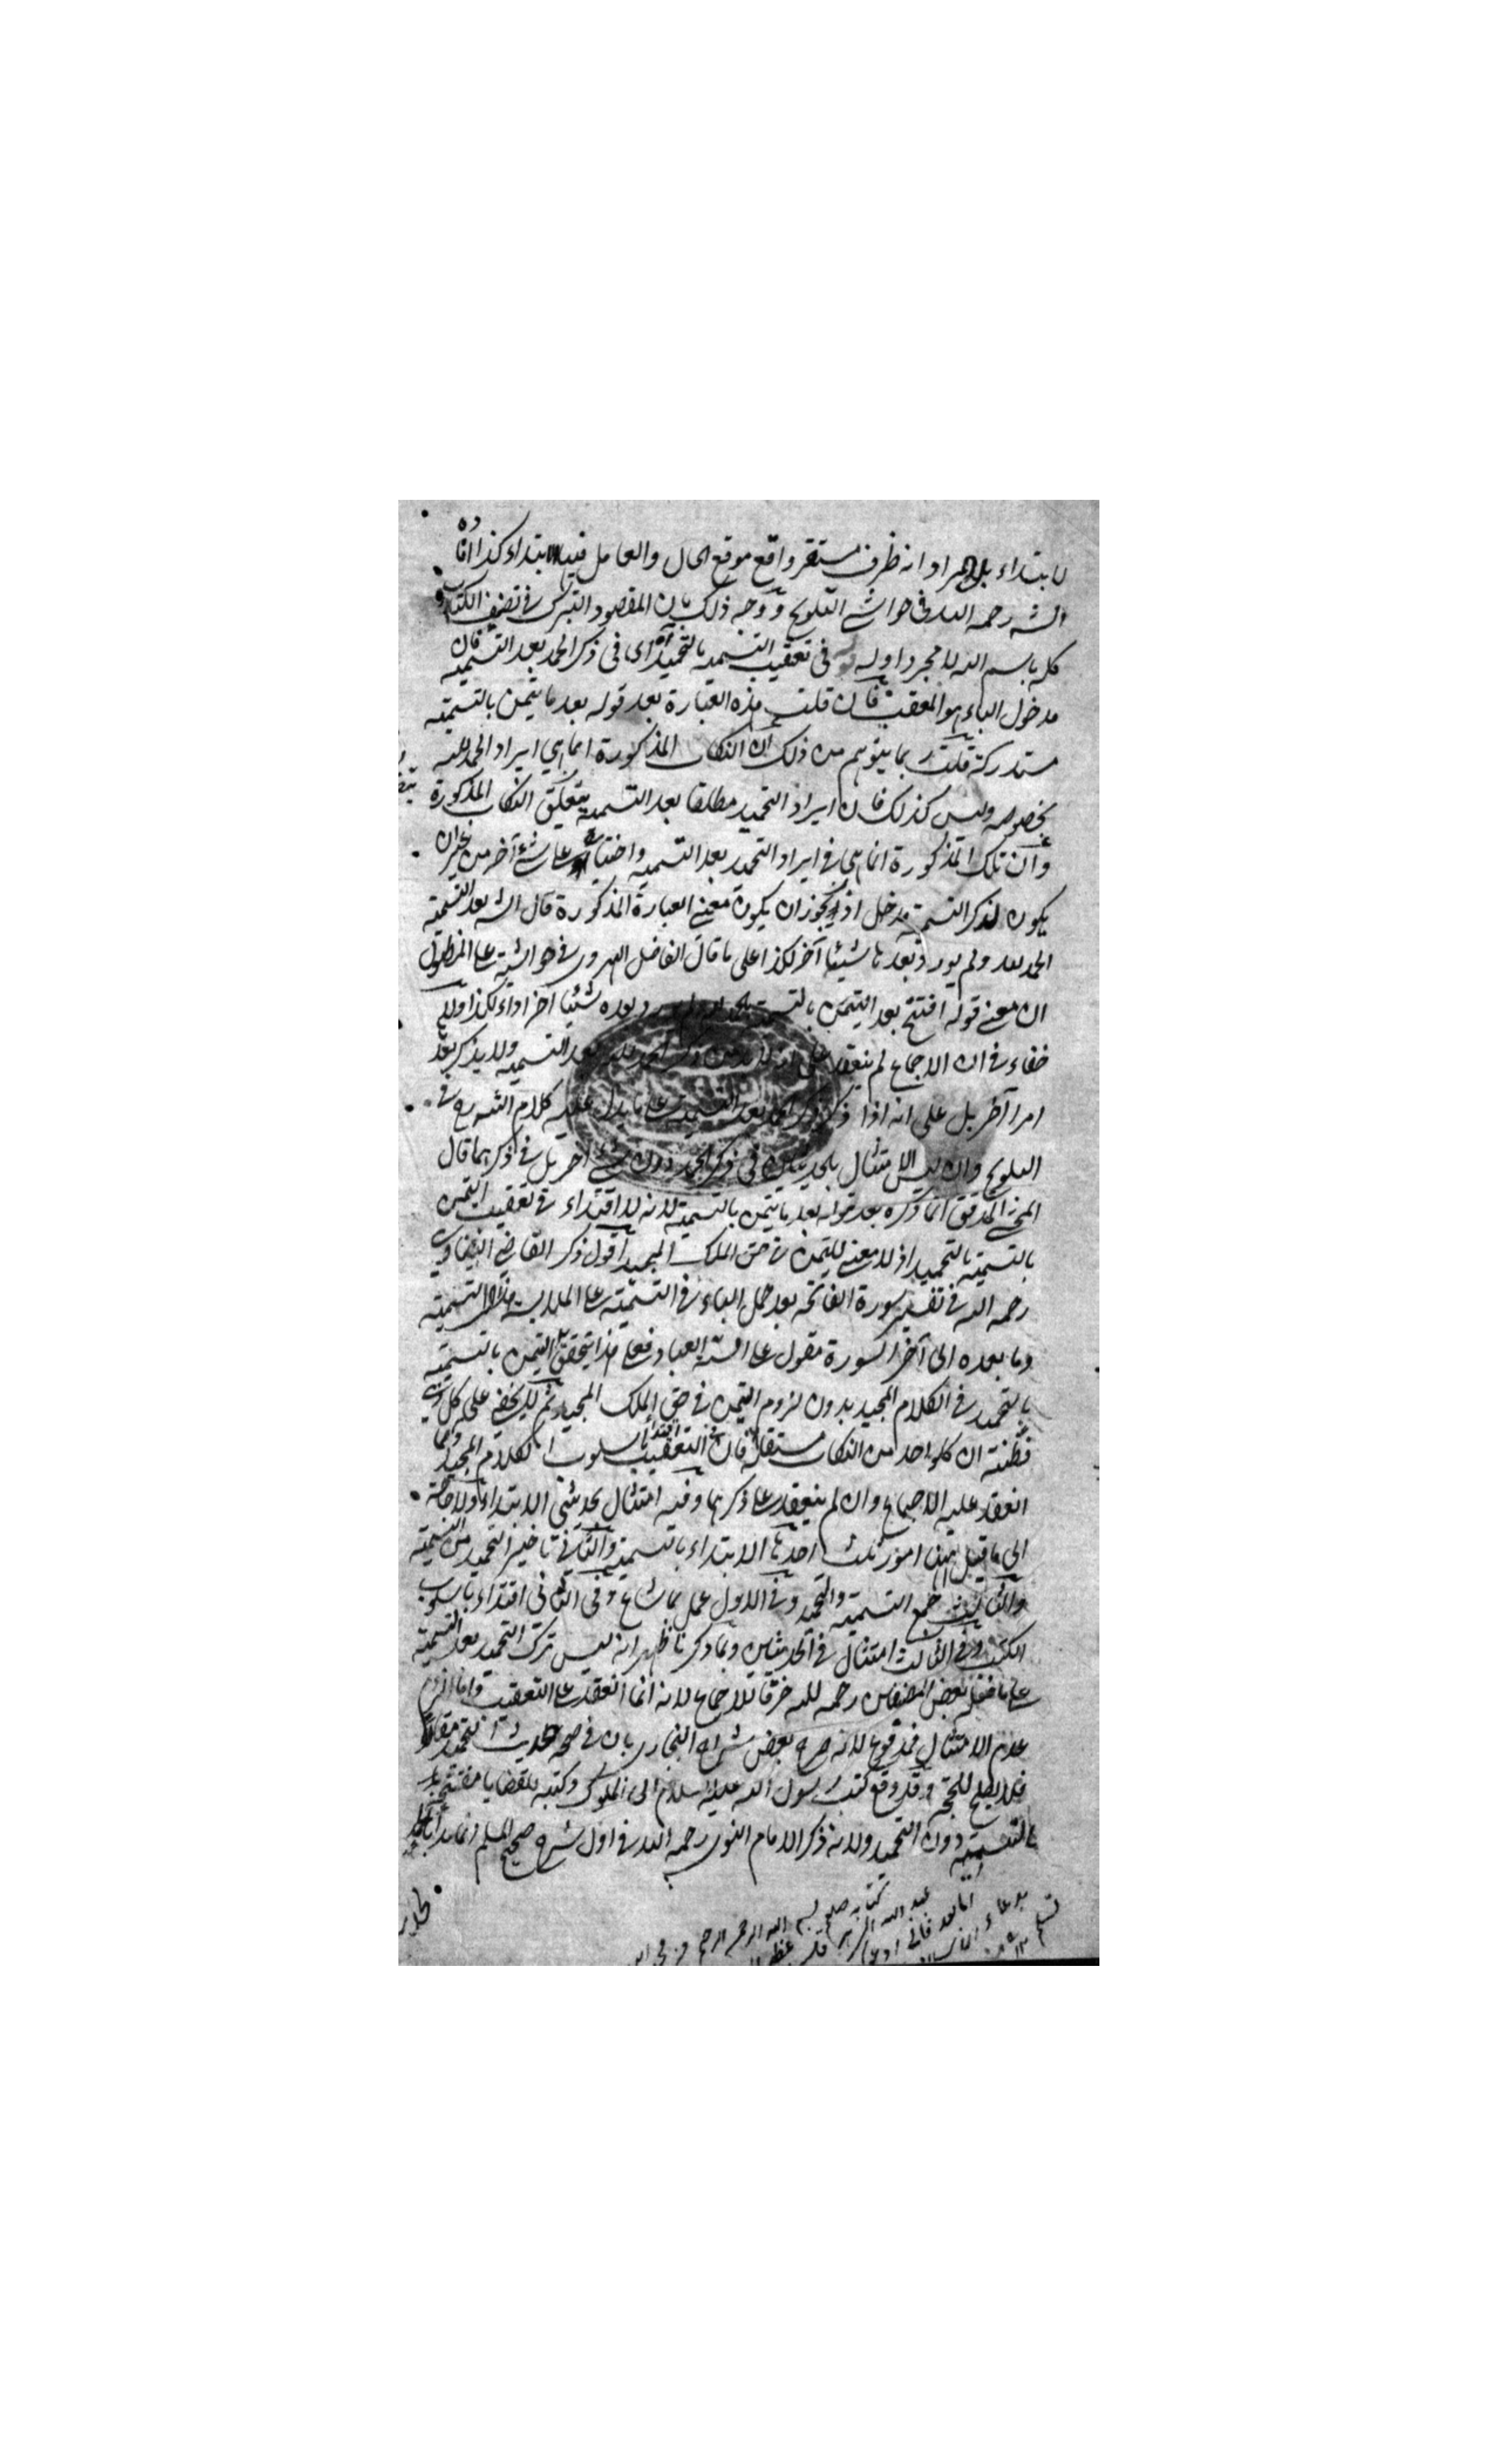 لابتداء بل المراد انه ظرف مستقر واقع موقع الحال والعامل فيه الابتداء كذا افاده
الشه رحمه الله في حواشي التلويح ووجه ذلك بان المقصود التبرك في تصنيف الكتاب
كله باسم الله لا مجرد اوله قوله في تعقيب التسميه بالتحميد آه اى في ذكر الحمد بعد التسميه فان
مدخول الباء هو المعقب فان قلت هذه العبارة بعد قوله بعد ما تيمن بالتسميه
مستدركة قلت ربما يتوهم من ذلك ان النكات المذكورة انما هي ايراد الحمد لله
بخصوصه وليس كذلك فان ايراد التحميد مطلقا بعد التسميه يتعلق النكات المذكورة
وان تلك المذكورة انما هي في ايراد التحميد بعد التسميه واختياره على شئ آخر من غير ان
يكون لذكر التسميه مدخل اذ يجوز ان يكون معنى العبارة المذكورة قال الشه بعد التسميه
الحمد لله ولم يورد بعدها شيئا آخر لكذا على ما قال الفاضل الهروى في حواشيه على المطول
ان معنى قوله افتتح بعد التيمن بالتسميه بحمد الله ولم يورد بعده شيئا آخر اداء لكذا ولا
خفاء في ان الاجماع لم ينعقد على انه لا بد من ذكر الحمد لله بعد التسميه ولا يذكر بعد
امرا آخر بل على انه اذا ذكر ذكر بعد التسميه على ما يدل عليه كلام الشه رح في
التلويح وان ليس الامتثال بالحديثين في ذكر الحمد دون شئ آخر بل في ذكرهما قال
المحشى المدقق انما ذكره بعد قوله بعد ما تيمن بالتسميه لانه لا اقتداء في تعقيب التيمن
بالتسميه بالتحميد اذ لا معنى للتيمن في حق الملك المجيد اقول ذكر القاضي البيضاوي
رحمه الله في تفسير سورة الفاتحه بعد حمل الباء في التسميه على الملابسة هذا التسميه
وما بعده الى آخر السورة مقول على السنة العباد فعلى هذا يتحقق التيمن بالتسميه
بالتحميد في الكلام المجيد بدون لزوم التيمن في حق الملك المجيد ثم لا يخفى على كل ذى
فطنة ان كل واحد من النكات مستقلة فان في التعقيب اقتداء باسلوب الكلام المجيد وبما
انعقد عليه الاجماع وان لم ينعقد على ذكرهما وفيه امتثال بحديثى الابتداء ولا حاجة
الى ما قيل ههنا امور ثلث احدها الابتداء بالتسميه والثاني تاخير التحميد من التسميه
والثالث جمع التسميه والتحميد وفى الاول عمل بما شاع وفى الثاني اقتداء باسلوب
الكتاب وفى الثالث امتثال في الحديثين وبما ذكرنا ظهر انه ليس ترك التحميد بعد التسميه
على ما فعله بعض المصنفين رحمه الله خرقا للاجماع لانه انما انعقد على التعقيب واما لزوم
عدم الامتثال فمدفوع لانه صرح بعض شراح البخارى بان في صحة حديث التحميد مقالا
فلا يصلح للحجة وقد وقع كتب رسول الله عليه السلام الى الملوك وكتبه بالقضايا مفتتحة
بالتسميه دون التحميد ولانه ذكر الامام النووى رحمه الله في اول شرح صحيح المسلم انما بدأ بالحمد
كتابه صلعم بسم الله الرحمن الرحيم من محمد
عبد الله
اما بعد فانى ادعوك
بدعاء